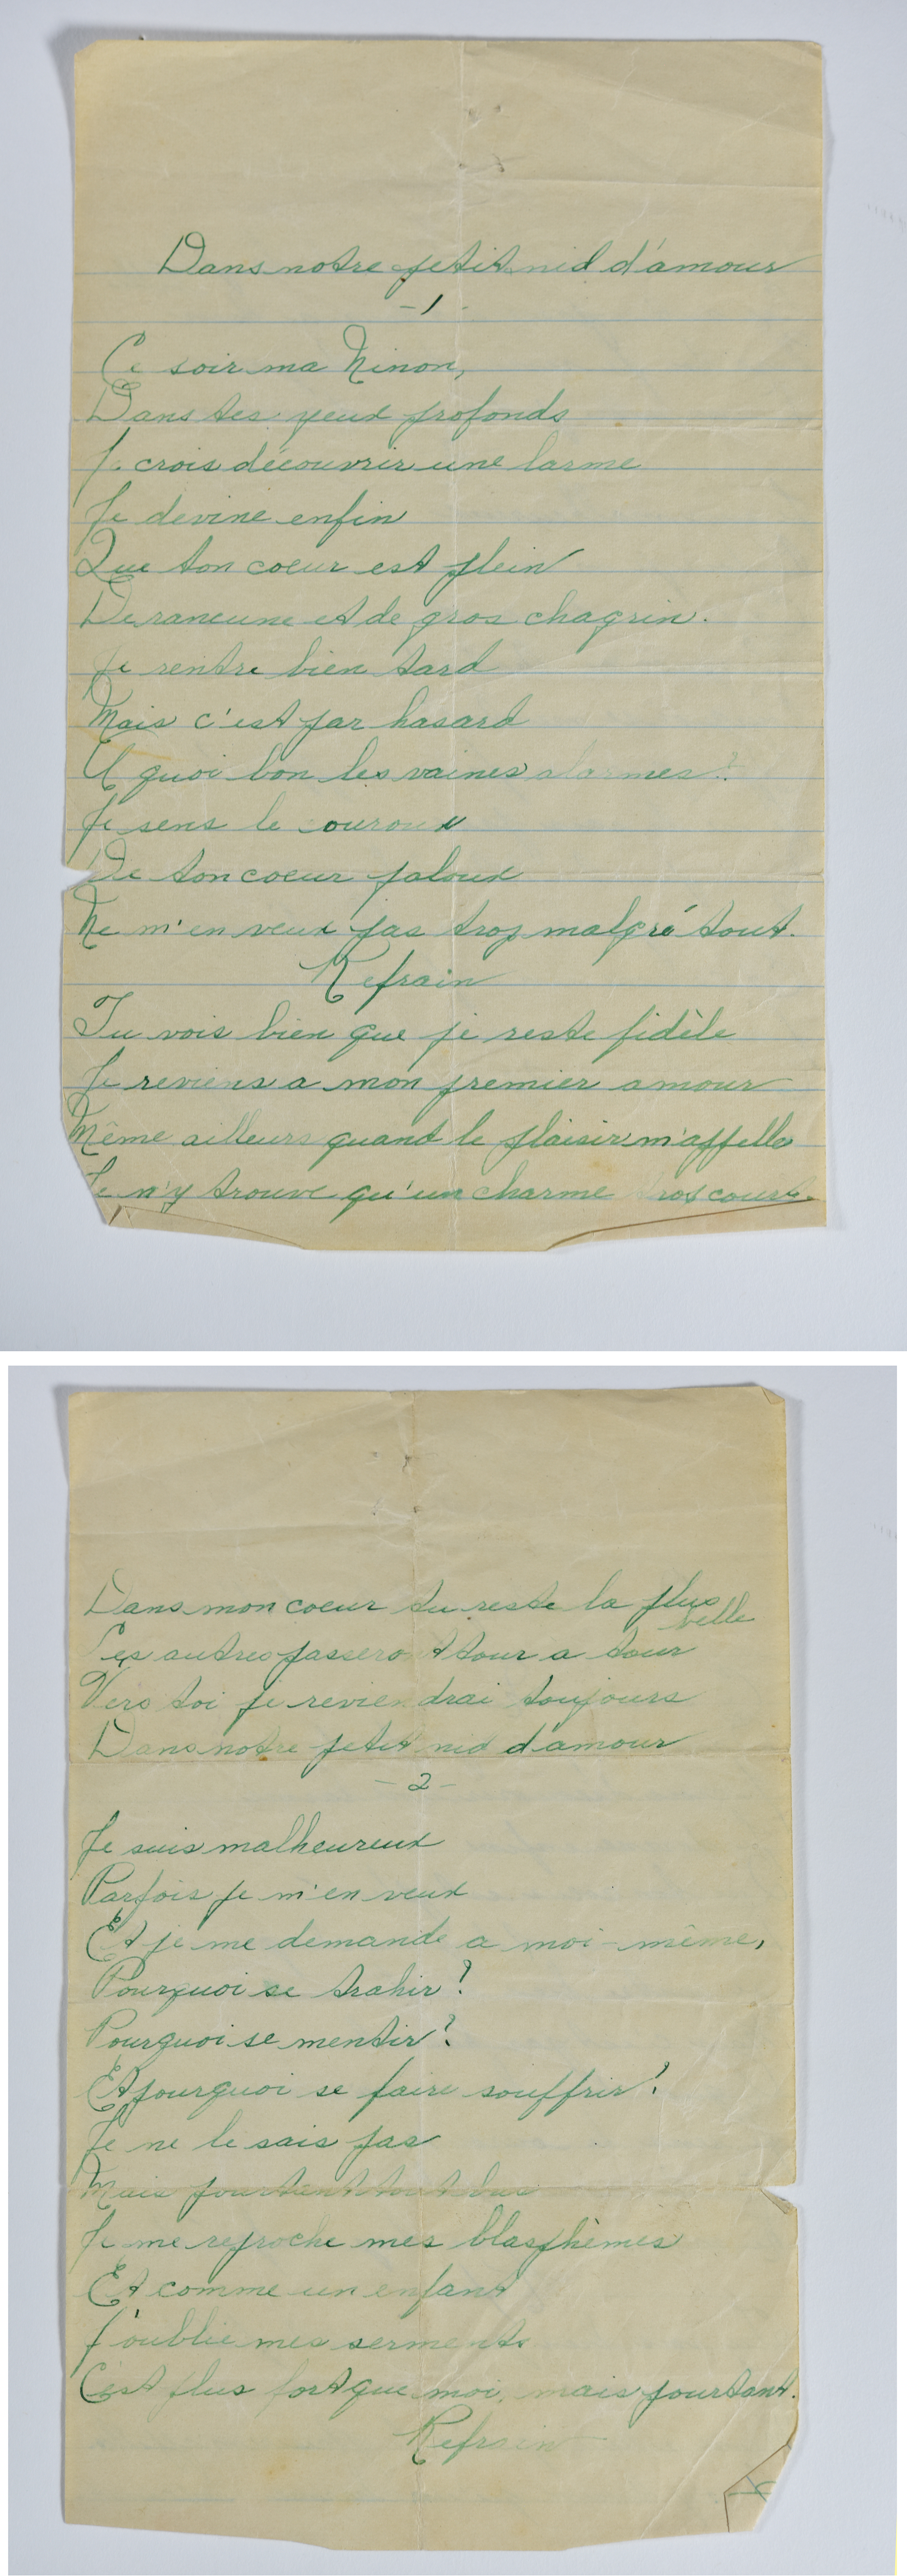 Dans notre petit nid d'amour
- 1 -
Ce soir ma Ninon,
Dans tes yeux profonds
Je crois découvrir une larme
Je devine enfin
Que ton coeur est plein
De rancune et de gros chagrin.
Je rentre bien tard
Mais c'est par hasard
A quoi bon les vaines alarmes?
Je sens le couroux
De ton coeur jaloux
Ne m'en veux pas trop malgré tout.
Refrain
Tu vois bien que je reste fidèle
Je reviens a mon premier amour
Même ailleurs quand le plaisir m'appelle
Je n'y trouve qu'un charme trop court.
Dans mon coeur tu reste la plus
belle
Les autres passeront tour a tour
Vers toi je reviendrai toujours
Dans notre petit nid d'amour
- 2 -
Je suis malheureux
Parfois je m'en veux
Et je me demande a moi-même,
Pourquoi se trahir?
Pourquoi se mentir?
Et pourquoi se faire souffrir?
Je ne le sais pas
Mais pourtant tout bas
Je me reproche mes blasphèmes
Et comme un enfant
J'oublie mes serments
C'est plus fort que moi, mais pourtant.
Refrain